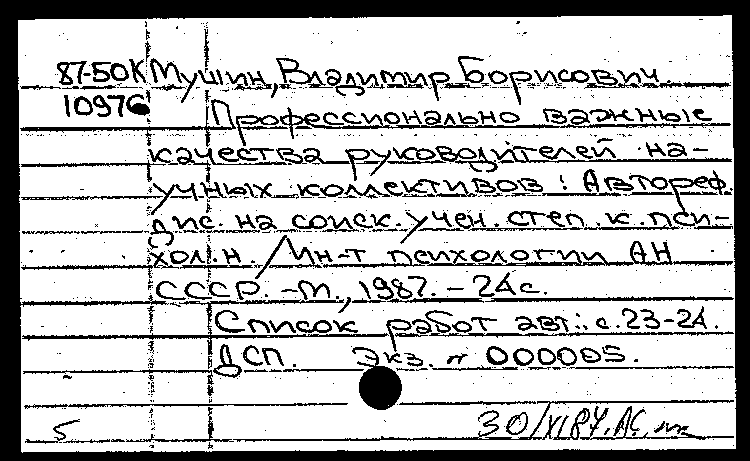 87-50К Мушин, Владимир Борисович.
10976 Профессионально важные
качества руководителей на-
учных коллективов : Автореф.
дис. на соиск. учен. степ. к. пси-
хол. н. / Ин-т психологии АН
СССР. - М., 1987. - 24 с.
Список работ авт.: с. 23-24.
ДСП. Экз. № 000005.
5 30/XI 87.